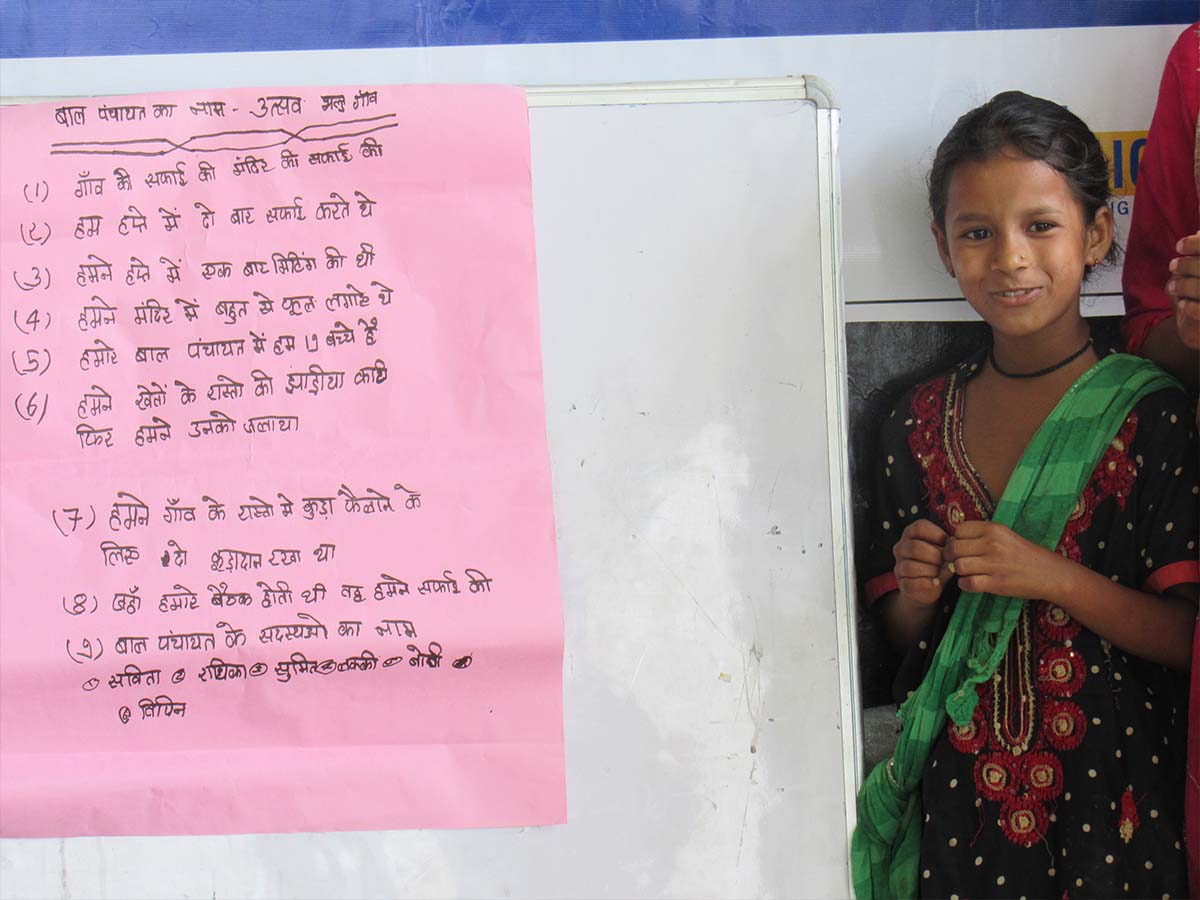 बाल पंचायत का नाम - उत्सव गाँव
(1) गाँव की सफाई की मंदिर की सफाई की
(2) हम हफ्ते में दो बार सफाई करते थे
(3) हमने हफ्ते में एक बार मिटिंग की थी
(4) हमने मंदिर में बहुत से फूल लगाऐ थे
(5) हमारे बाल पंचायत में हम 19 बच्चे है
(6) हमने खेतों के रास्तो की झाड़ीया काटी
फिर हमने उनको जलाया
(7) हमने गाँव के रास्ते मे कुड़ा फैलाने के
लिए दो कुड़ादान रखा था
(8) जहाँ हमारे बैठक होती थी वह हमने सफाई की
(9) बाल पंचायत के सदस्यओ का नाम
① सविता ② राधिका ③ सुमित ④ लक्की
⑥ विपिन
IG